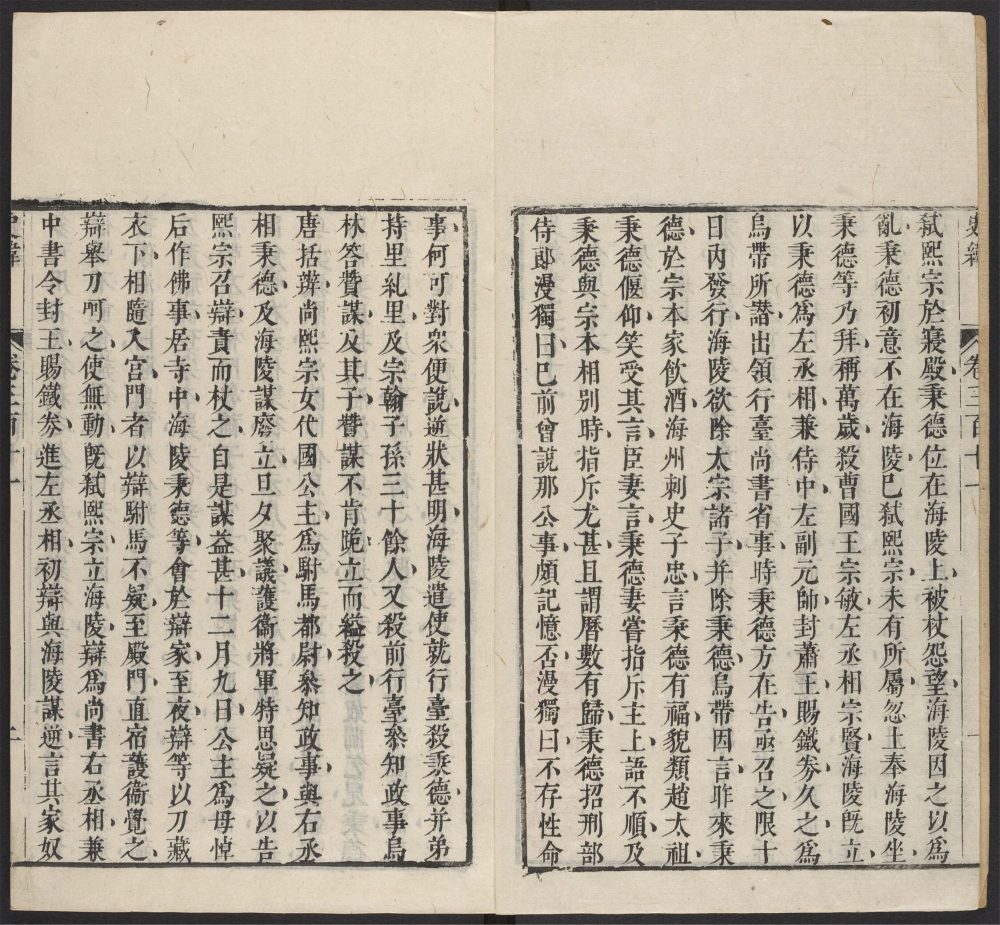 史緯 卷三百十一 一
弑熙宗於寢殿秉德位在海陵上被杖怨望海陵因之以爲
亂秉德初意不在海陵已弑熙宗未有所屬忽土奉海陵坐
秉德等乃拜稱萬歲殺曹國王宗敏左丞相宗賢海陵旣立
以秉德爲左丞相兼侍中左副元帥封蕭王賜鐵券久之爲
烏帶所譖出領行臺尚書省事時秉德方在告亟召之限十
日內發行海陵欲除太宗諸子并除秉德烏帶因言昨來秉
德於宗本家飲酒海州刺史子忠言秉德有福貌類趙太祖
秉德偃仰笑受其言臣妻言秉德妻嘗指斥主上語不順及
秉德與宗本相别時指斥尤甚且謂曆數有歸秉德招刑部
侍郎漫獨曰已前曾說那公事頗記憶否漫獨曰不存性命
事何可對衆便說逆狀甚明海陵遣使就行臺殺秉德并弟
持里糺里及宗翰子孫三十餘人又殺前行臺叅知政事烏
林答贊謀及其子贊謀不肯跪立而縊殺之
唐括辨尚熙宗女代國公主爲駙馬都尉叅知政事與右丞
相秉德及海陵謀廢立旦夕聚議護衞將軍特思疑之以告
熙宗召辯責而杖之自是謀益甚十二月九日公主爲母悼
后作佛事居寺中海陵秉德等會於辯家至夜辯等以刀藏
衣下相隨入宮門者以辯駙馬不疑至殿門直宿護衞覺之
辯舉刀呵之使無動旣弑熙宗立海陵辯爲尚書右丞相兼
中書令封王賜鐵券進左丞相初辯與海陵謀逆言其家奴
史緯 卷三百十一 二